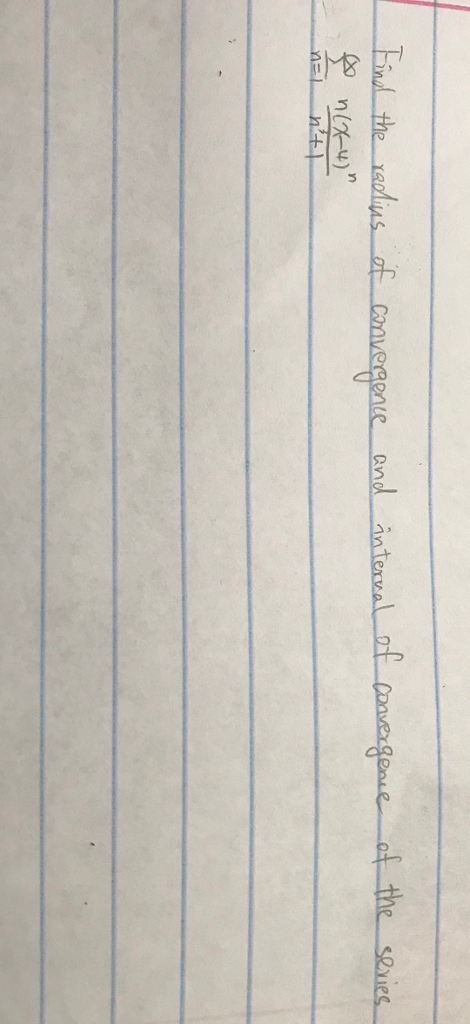 Find the radius of convergence and interval of convergence of the series
∞
Σ n=1 n(x-4)ⁿ / n³+1